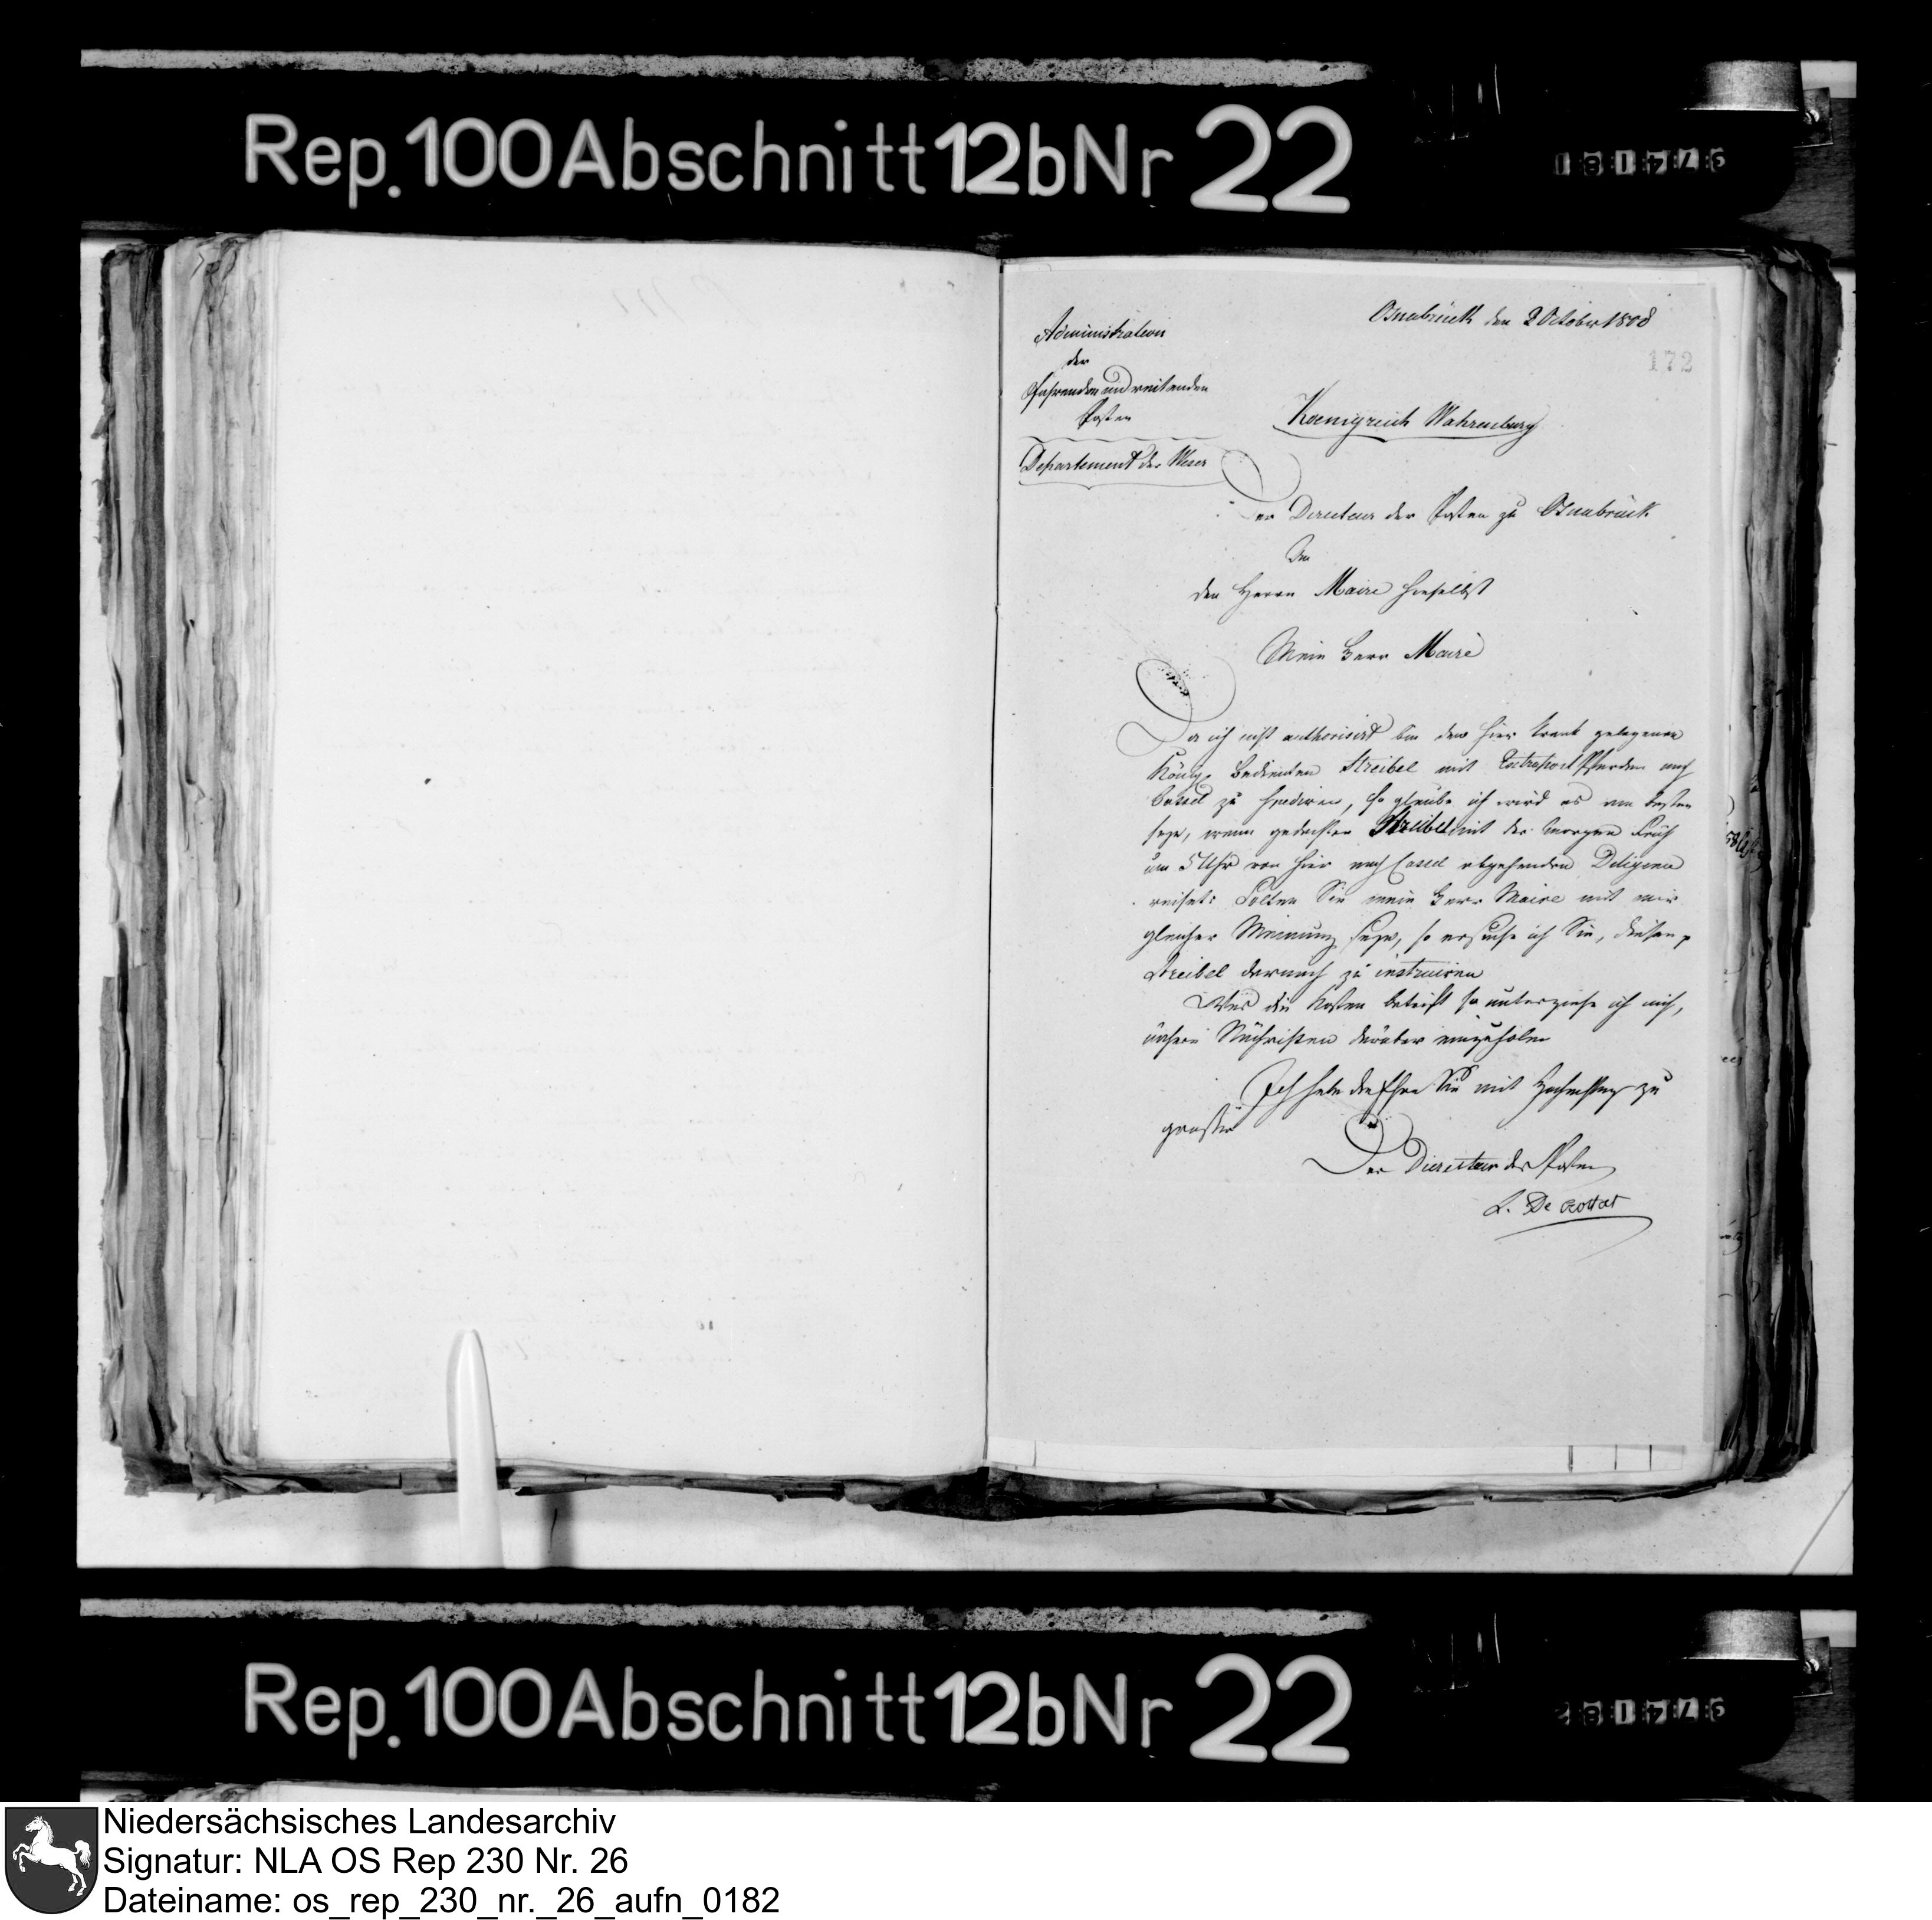 Rep. 100 Abschnitt 12b Nr 22
Osnabrück den 2 October 1808
172
Administration
der
fahrenden und reitenden
Posten
Koenigreich
Departement der Weser
Der Directeur der Posten zu Osnabrück
An
den Herrn Maire hieselbst
Mein Herr Maire
Da ich nicht authorisirt bin den hier krank gelegenen
König. Bedienten Streibel mit Extrapost Pferden nach
Cassel zu spediren, so glaube ich wird es am besten
seyn, wenn gedachter Streibel mit der morgen früh
um 5 Uhr von hier nach Cassel abgehenden Diligence
reiset: Solten Sie mein Herr Maire mit mir
gleicher Meinung seyn, so ersuche ich Sie, diesen p
Streibel darnach zu instruiren
Was die Kosten betrift so unterziehe ich mich,
darüber einzuholen
Ich habe die Ehre Sie mit Hochachtung zu
Der Directeur der Posten
Rep. 100 Abschnitt 12b Nr 22
Niedersächsisches Landesarchiv
Signatur: NLA OS Rep 230 Nr. 26
Dateiname: os_rep_230_nr._26_aufn_0182